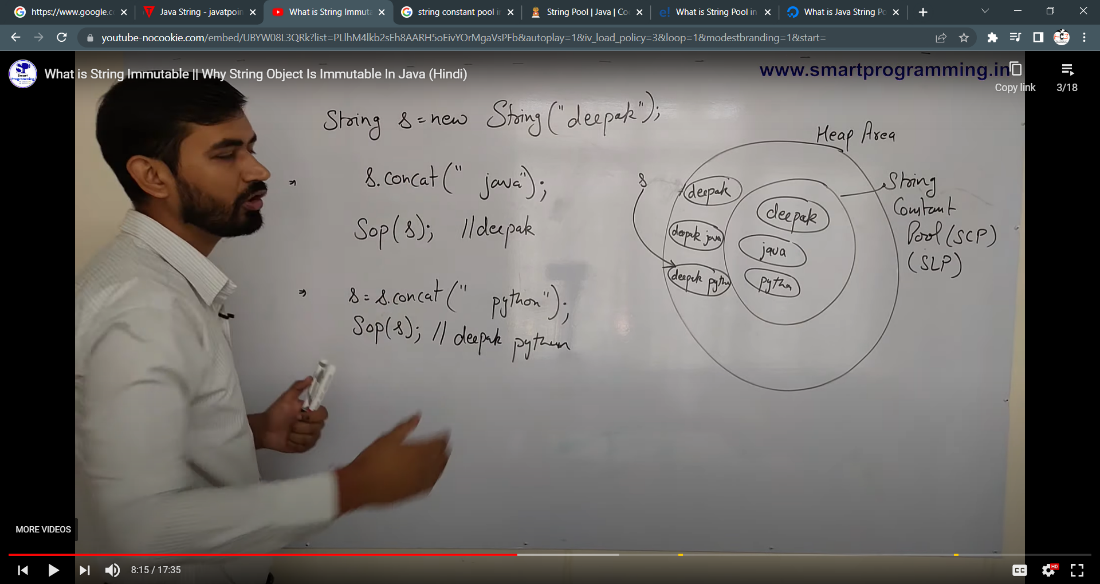 https://www.google.c
Java String - javatpoin
What is String Immuta
string constant pool in
String Pool | Java | Co
What is String Pool in
What is Java String Po
youtube-nocookie.com/embed/UBYW08L3QRk?list=PLlhM4lkb2sEh8AARH5oEivYOrMgaVsPFb&autoplay=1&iv_load_policy=3&loop=1&modestbranding=1&start=
What is String Immutable || Why String Object Is Immutable In Java (Hindi)
www.smartprogramming.in
Copy link
3/18
String s = new String("deepak");
s.concat(" java");
Sop(s); //deepak
s = s.concat(" python");
Sop(s); // deepak python
Heap Area
s
deepak
deepak java
deepak pytho
deepak
java
python
String
Constant
Pool (SCP)
(SLP)
MORE VIDEOS
8:15 / 17:35
CC
HD